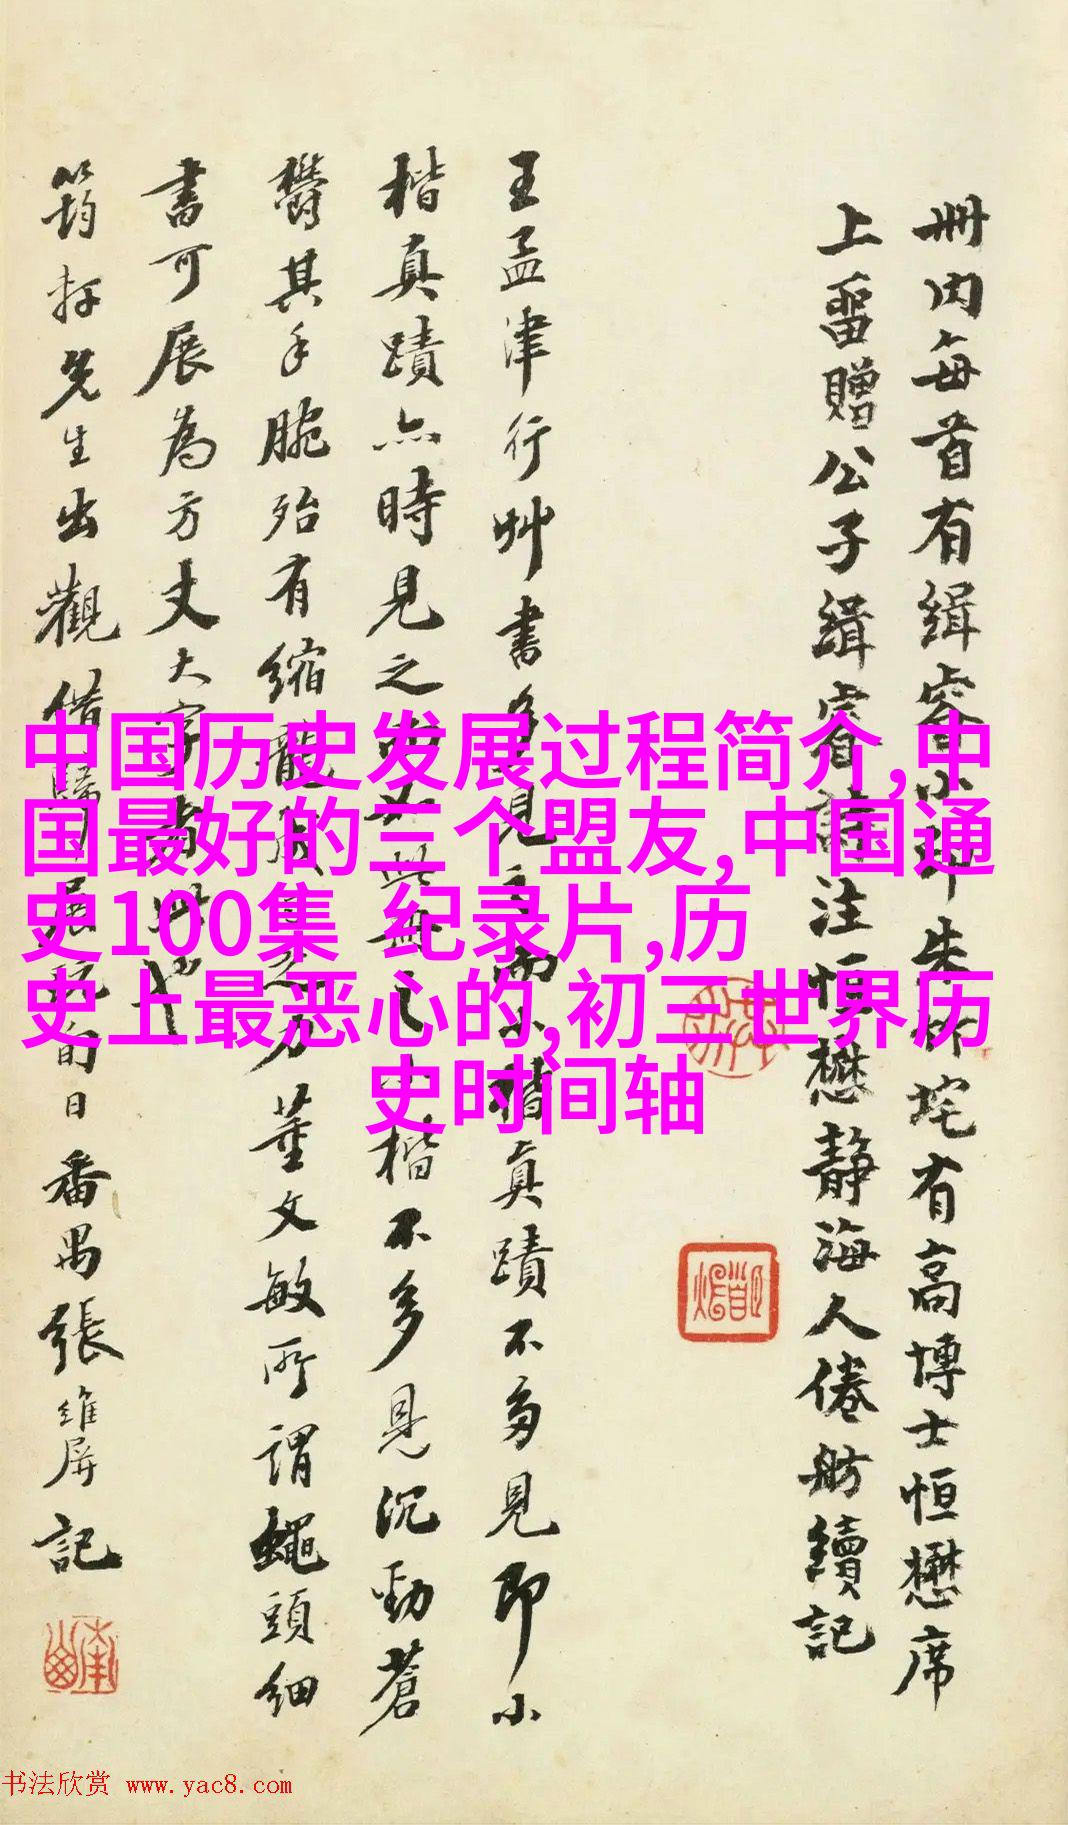 冊内每首有緝
上留贈公子緝
注恒懋靜海人倦舫續記
朱
垞有高博士恒懋席
王孟津行艸書
真蹟不多見即小
楷真蹟亦時見之
楷不多見沉勁蒼
鬱其手腕殆有縮
董文敏所謂蠅頭細
書可展為方丈大字
筠
先生出觀借歸
日番禺張維屏記
中国历史发展过程简介,中
国最好的三个盟友,中国通
史100集 纪录片,历
史上最恶心的,初三世界历
史时间轴
书法欣赏 www.yac8.com